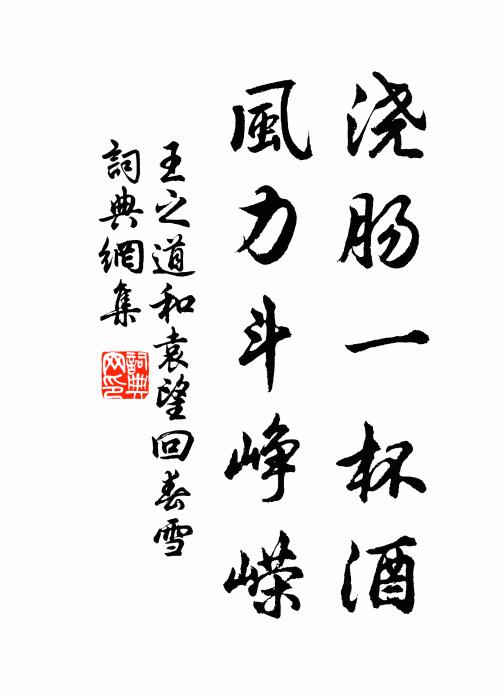 浇肠一杯酒
風力斗峥嵘
王之道和袁望回春雪
詞典網集
詞典網印